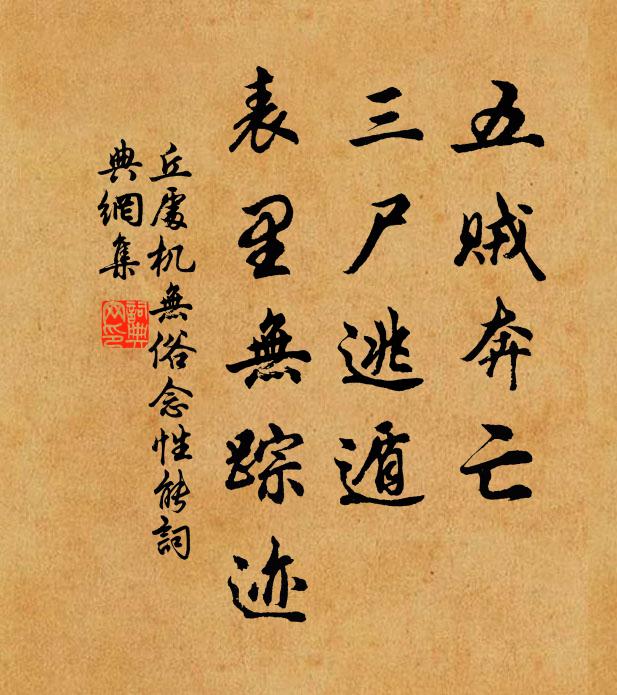 五贼奔亡
三尸逃遁
表里無踪迹
丘處机無俗念性能詞
典網集
詞典
网印